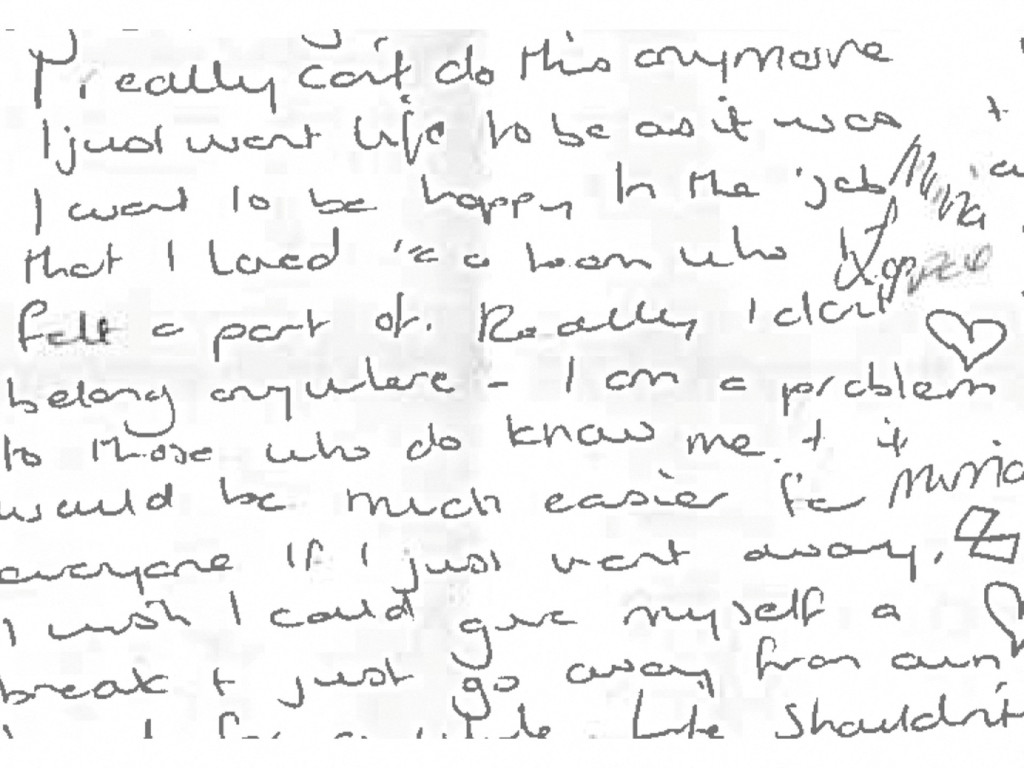 I really can't do this anymore
I just want life to be as it was +
I want to be happy in the job
that I loved a team who I
felt a part of. Really I don't
belong anywhere - I am a problem
to those who do know me + it
would be much easier for
everyone if I just went away.
I wish I could give myself a
break + just go away from
for a while. Life shouldn't